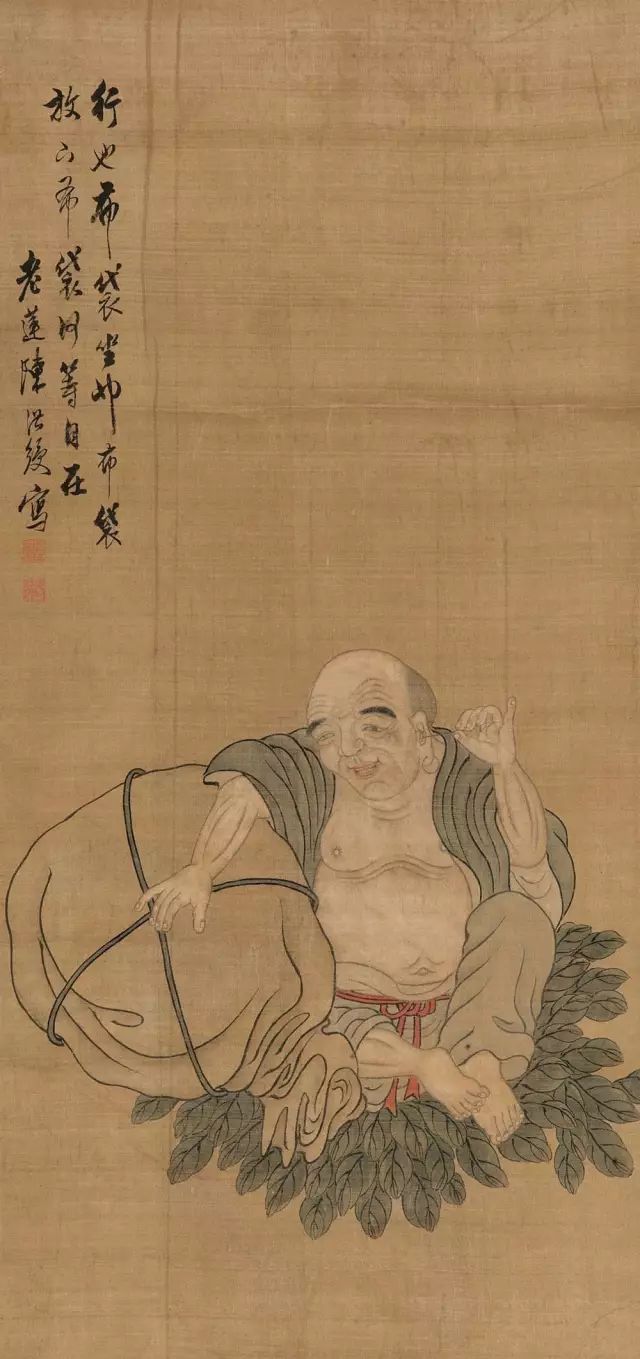 行也布袋坐布袋
放下布袋何等自在
老蓮陳洪綬寫